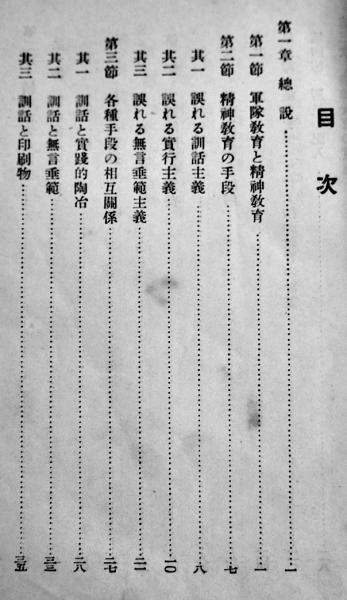 目次
第一章 總說…一
第一節 軍隊敎育と精神敎育…一
第二節 精神敎育の手段…七
其一 誤れる訓話主義…八
其二 誤れる實行主義…一〇
其三 誤れる無言垂範主義…二一
第三節 各種手段の相互關係…二七
其一 訓話と實踐的陶冶…二八
其二 訓話と無言垂範…三三
其三 訓話と印刷物…三五